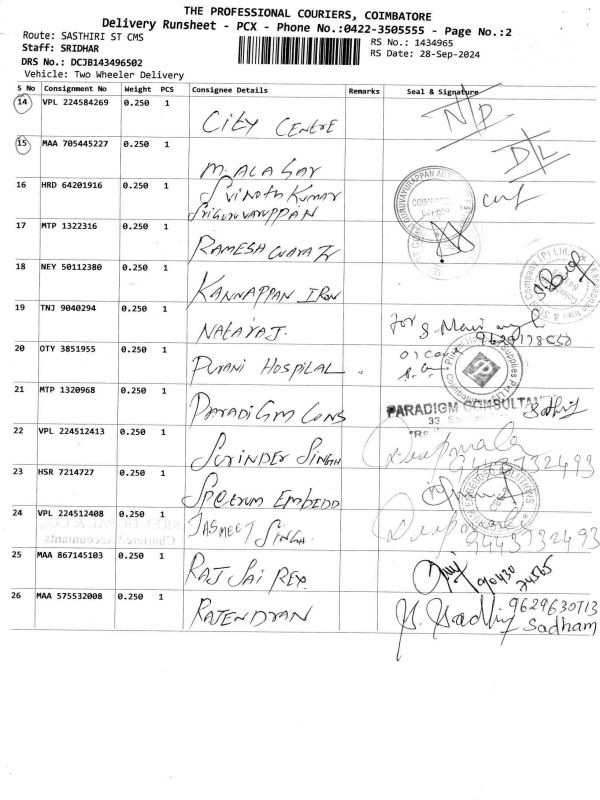 THE PROFESSIONAL COURIERS, COIMBATORE
Delivery Runsheet - PCX - Phone No.:0422-3505555 - Page No.:2
Route: SASTHIRI ST CMS
RS No.: 1434965
Staff: SRIDHAR
RS Date: 28-Sep-2024
DRS No.: DCJB143496502
Vehicle: Two Wheeler Delivery
S No Consignment No Weight PCS Consignee Details Remarks Seal & Signature
14 VPL 224584269 0.250 1 CITY CENTRE N/D
15 MAA 705445227 0.250 1 M. ALAGAR D/L
16 HRD 64201916 0.250 1 SVINOTH KUMAR
SRIGURUVARUPPAN
17 MTP 1322316 0.250 1 RAMESH
18 NEY 50112380 0.250 1 KANNAPPAN IRON
19 TNJ 9040294 0.250 1 NATARAJ. for S.
20 OTY 3851955 0.250 1 PURANI HOSPILAL
21 MTP 1320968 0.250 1 PARADIGM CONS PARADIGM CONSULTAN
33,
22 VPL 224512413 0.250 1 SURINDER SINGH
9443732493
23 HSR 7214727 0.250 1 SPECTRUM EMBEDD
24 VPL 224512408 0.250 1 JASMEET SINGH.
9443732493
25 MAA 867145103 0.250 1 RAJ SAI REX. 90430
74565
26 MAA 575532008 0.250 1 RAJENDRAN 9629630713
Sadham